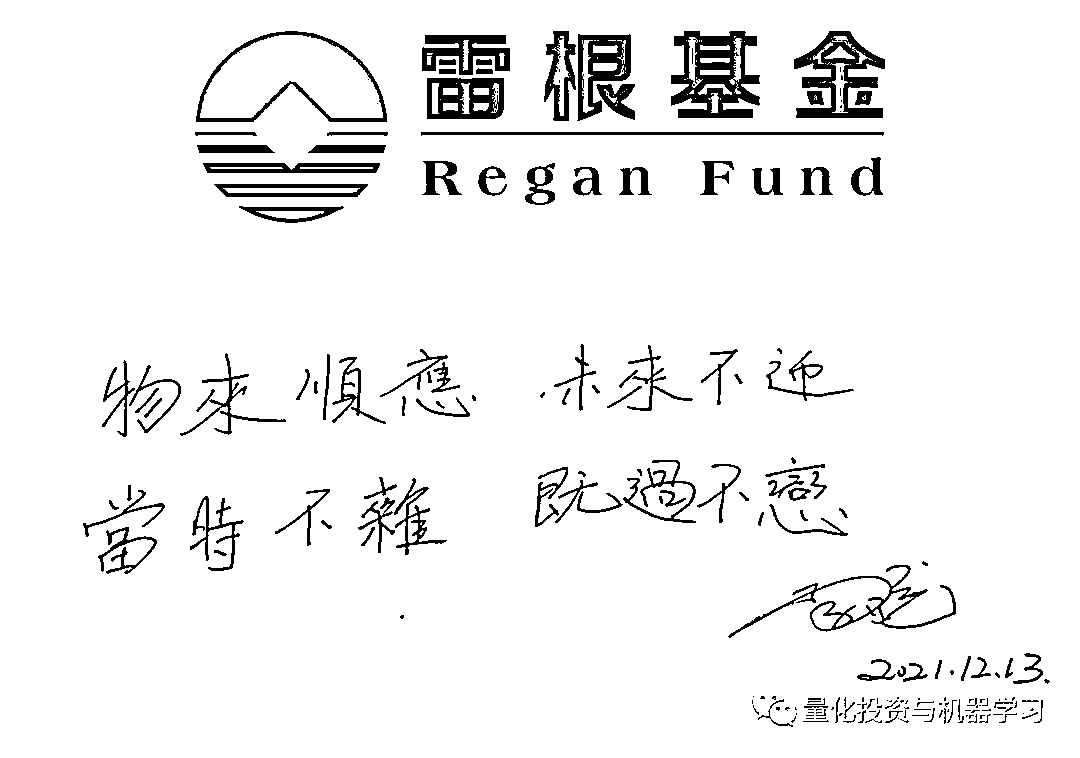 雷根基金
Regan Fund
物來順應 未來不迎
當時不雜 既過不戀
2021.12.13.
量化投资与机器学习